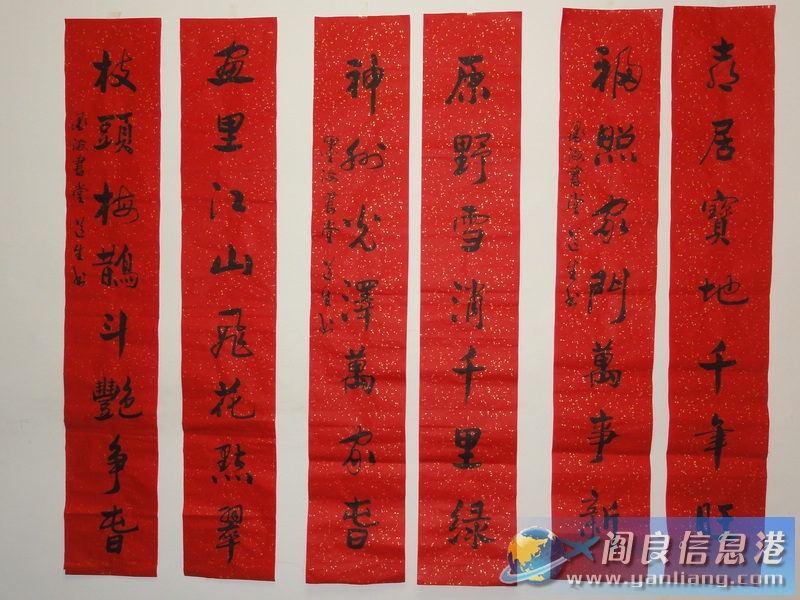 喜居寶地千年旺
福照家門萬事新
書堂
原野雪消千里绿
神州光澤萬家春
書堂
画里江山飛花點翠
枝頭梅鵲斗艷争春
書堂
阎良信息港
www.yanliang.com